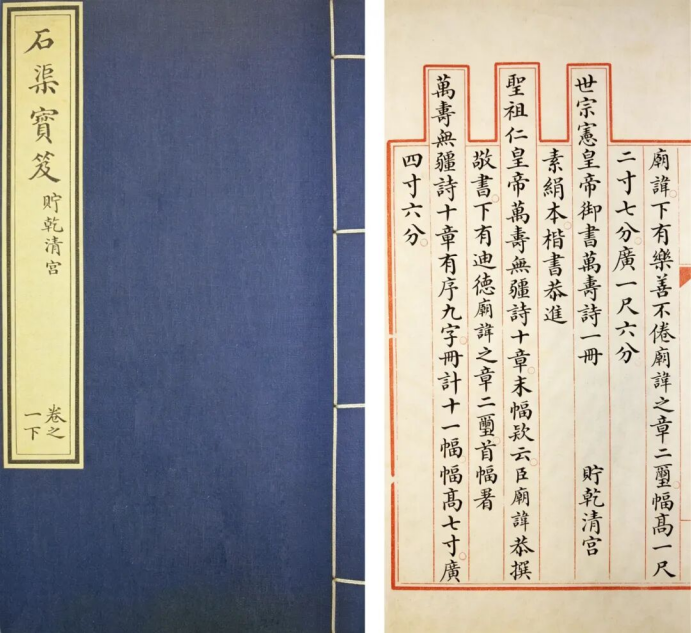 石渠寶笈
貯乾清宮
卷之
一下
廟諱下有樂善不倦廟諱之章二璽幅高一尺
二寸七分廣一尺六分
世宗憲皇帝御書萬壽詩一冊 貯乾清宮
素絹本楷書恭進
聖祖仁皇帝萬壽無疆詩十章末幅款云臣廟諱恭撰
敬書下有迪德廟諱之章二璽首幅署
萬壽無疆詩十章有序九字冊計十一幅幅高七寸廣
四寸六分